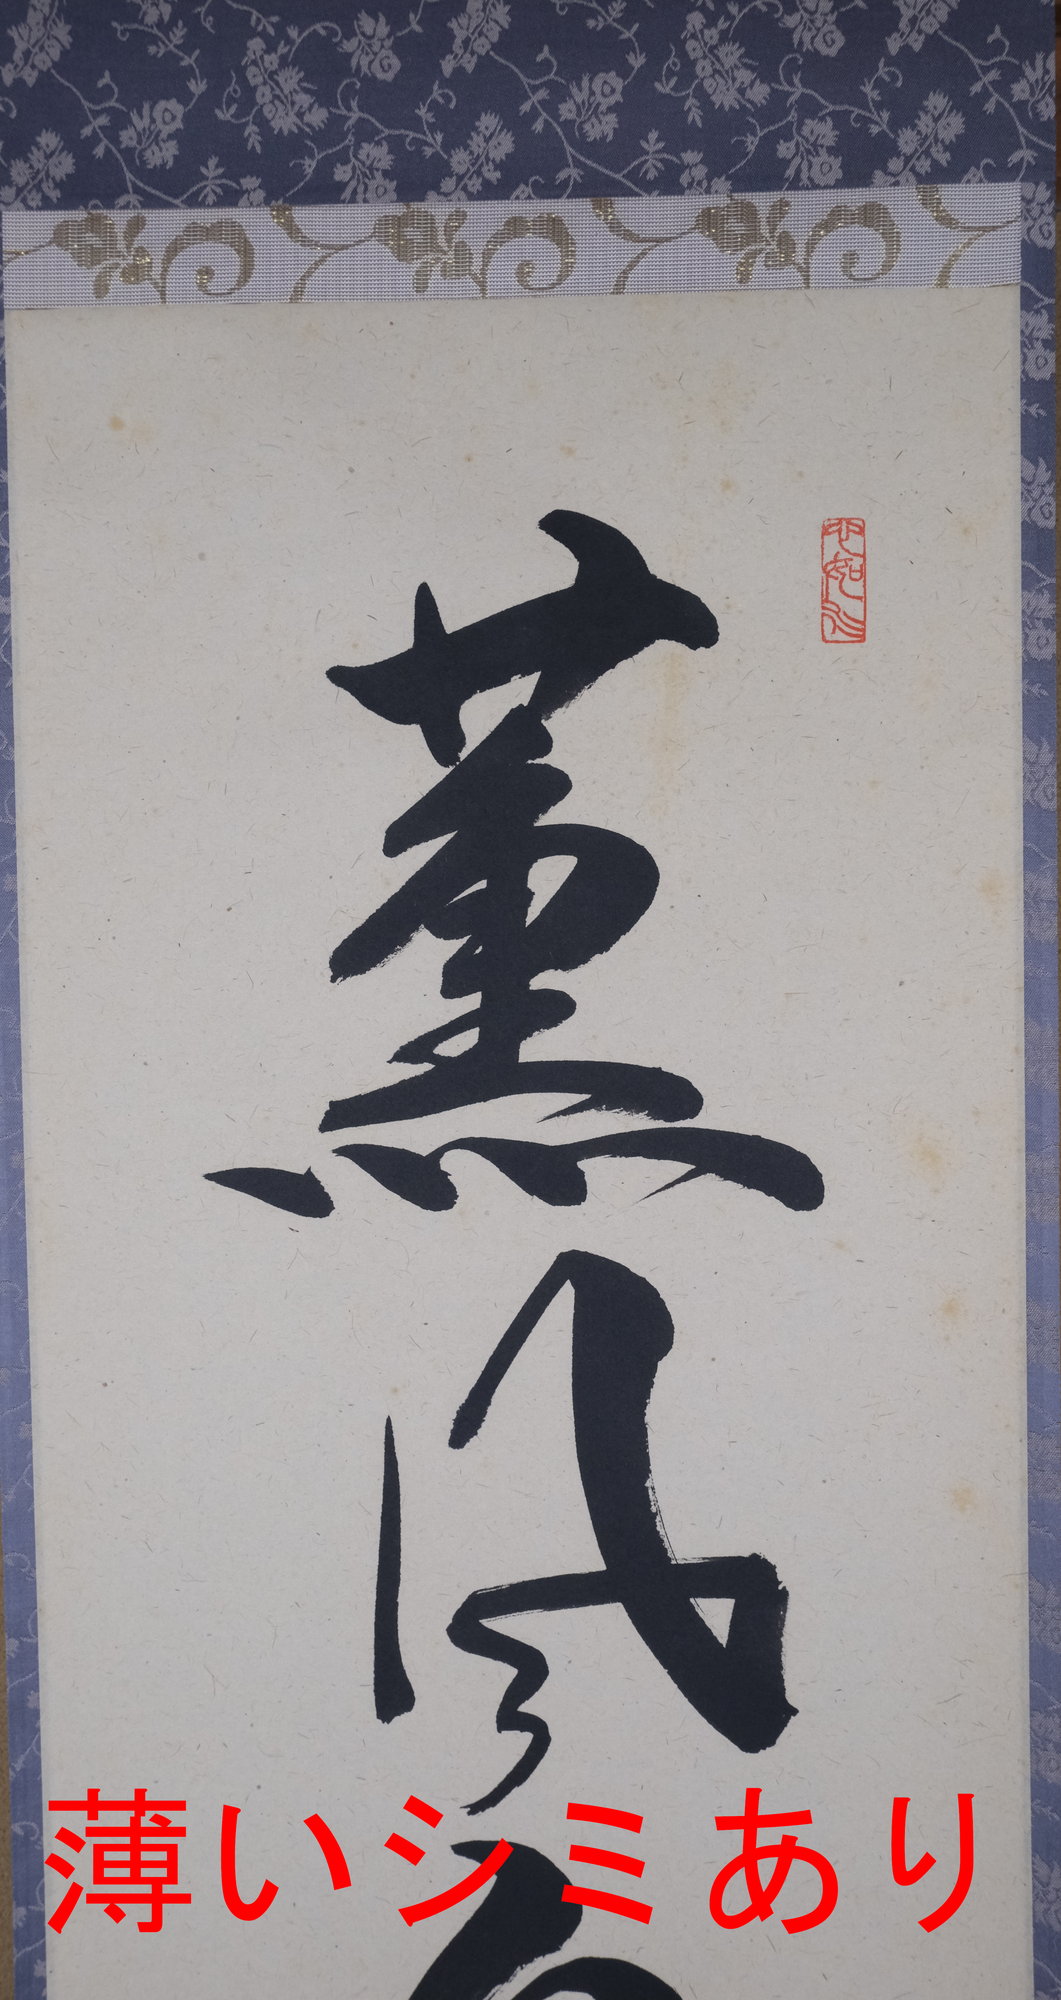 薫風
薄いシミあり